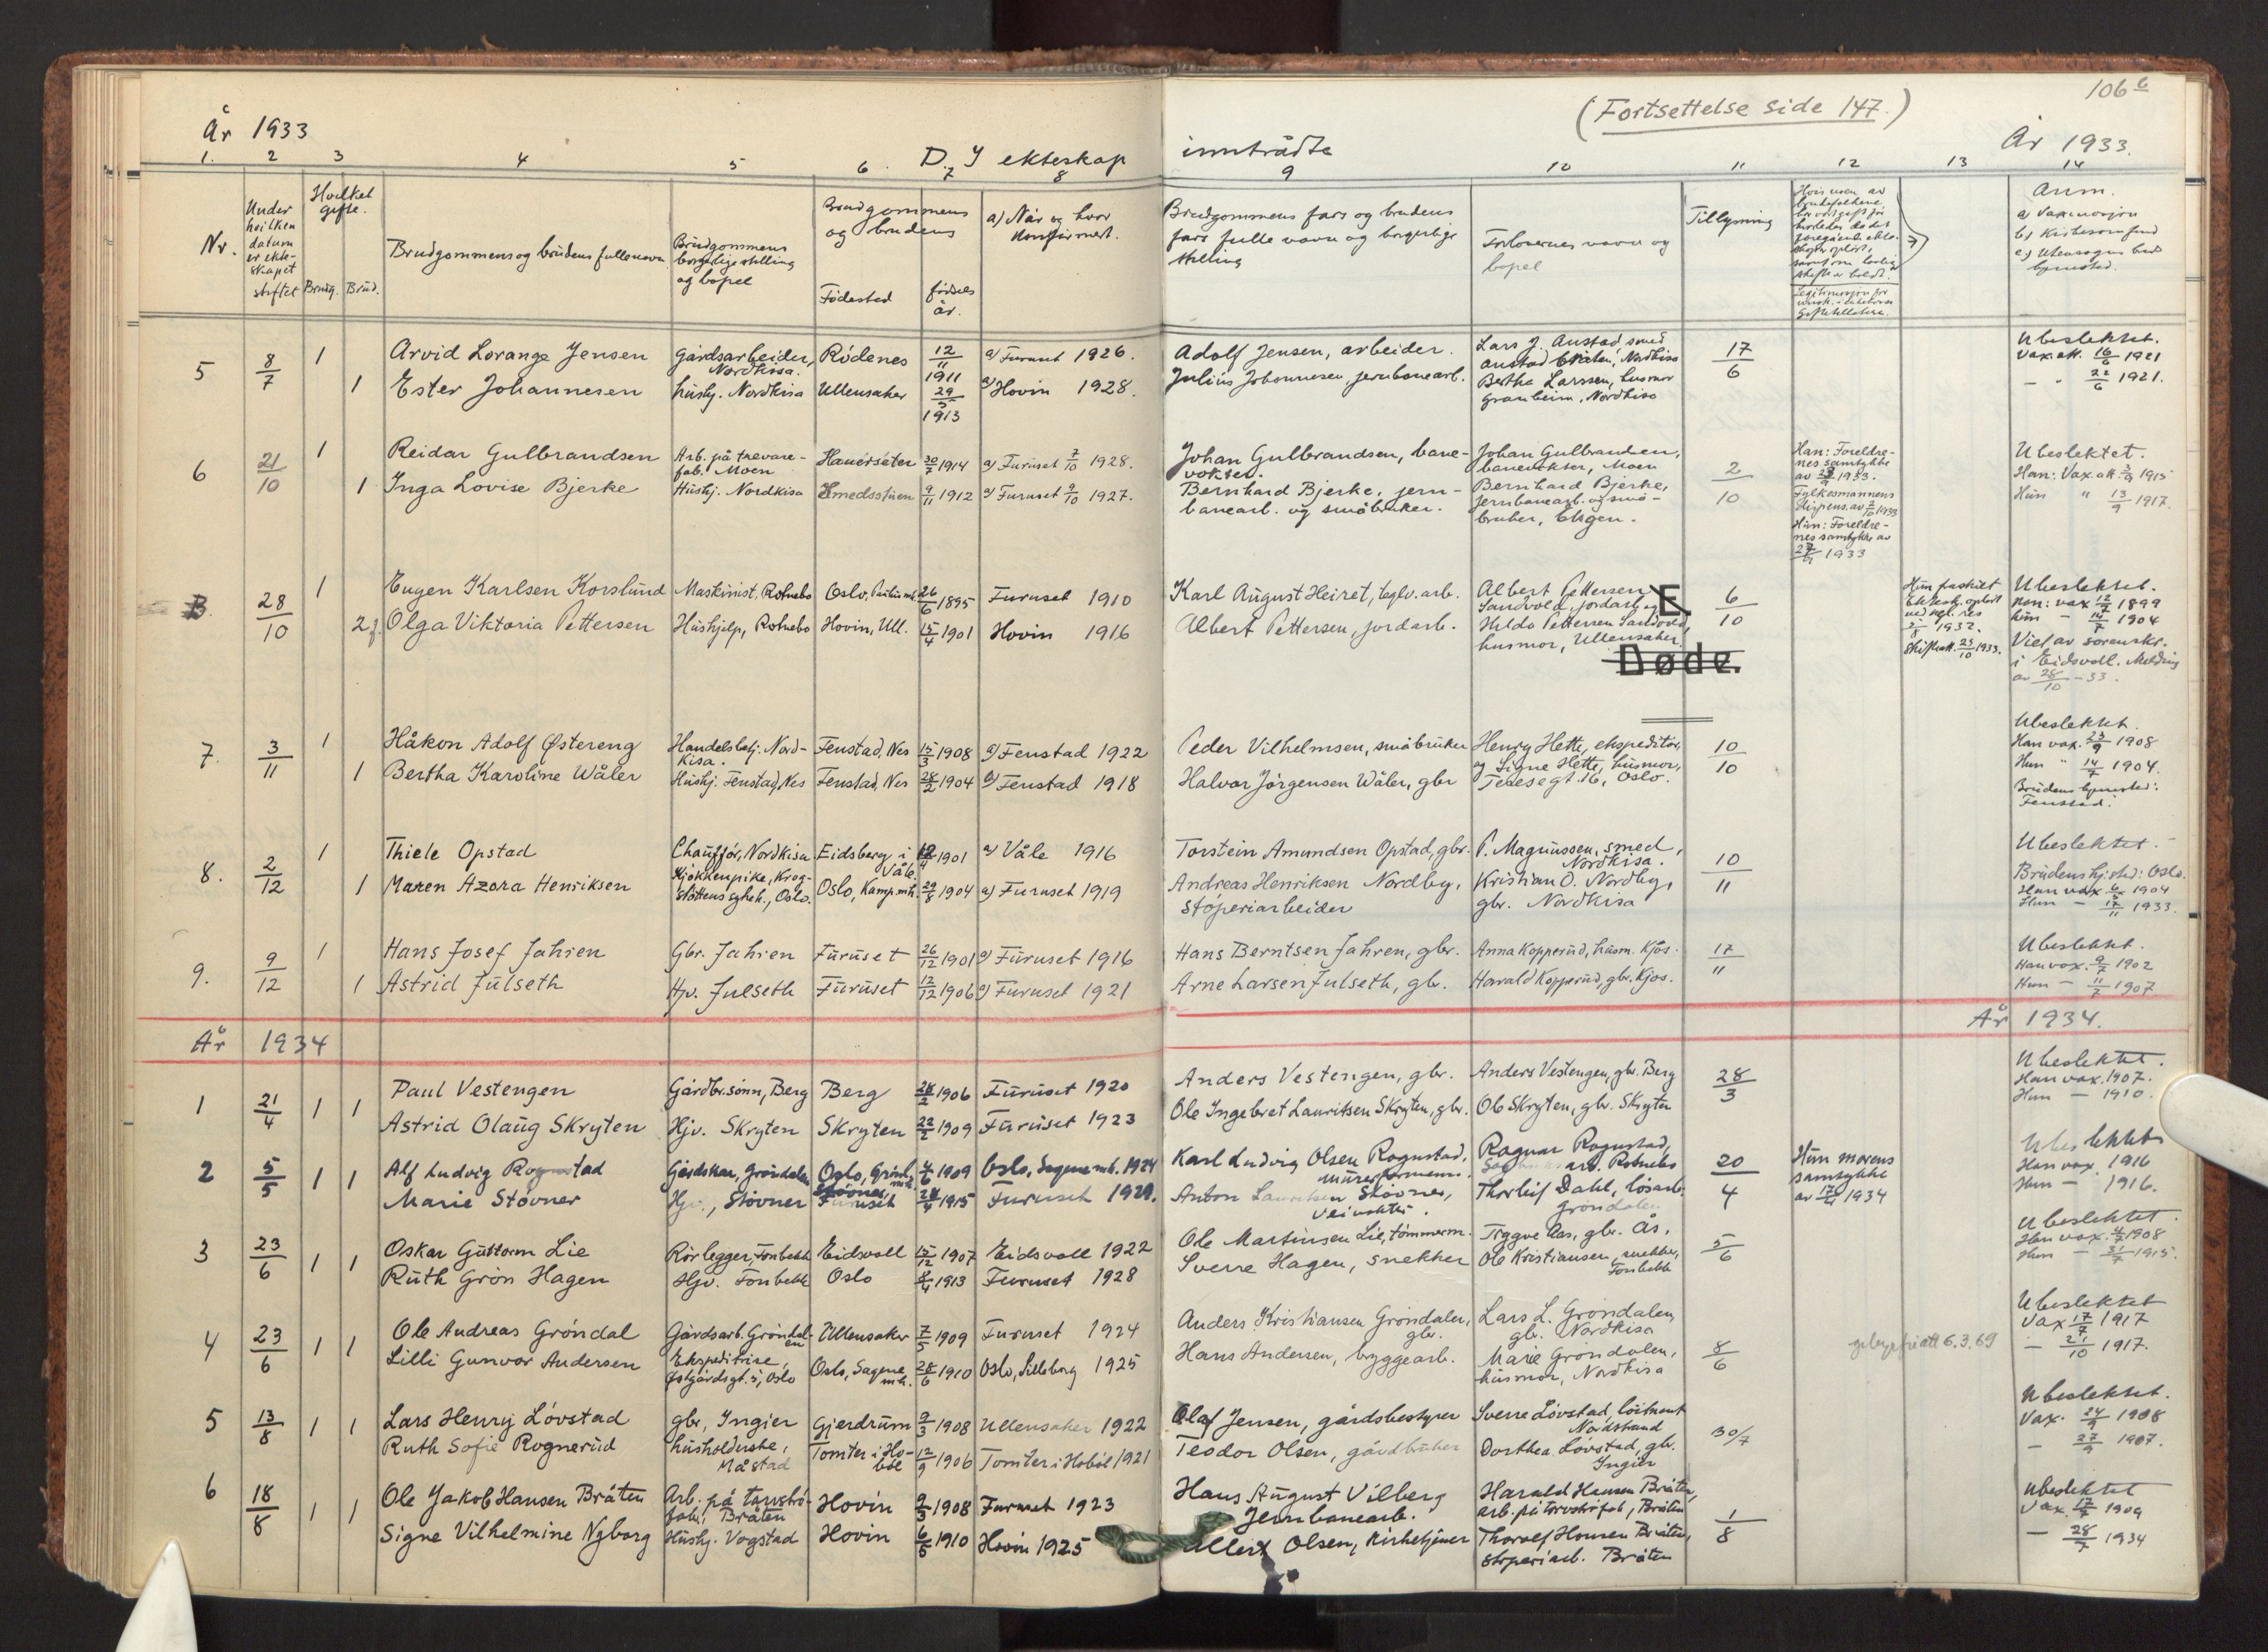 År 1933
D, I ekteskap
inntrådte
(Fortsettelse side 147.)
106 b
År 1933.
1. 2 3 4 5 6 7 8 9 10 11 12 13 14
Nr.
Under
hvilken
datum
er ekte-
skapet
stiftet
Hvilket
gifte.
Brudg. Brud.
Brudgommens og brudens fulle navn
Brudgommens
borgerlige stilling
og bopel
Brudgommens
og brudens
Fødested
fødsels
år.
a) Når og hvor
konfirmert.
Brudgommens fars og brudens
fars fulle navn og borgerlige
stilling
Forlovernes navn og
bopel
Tillysning
Anm.
a) Vaksinasjon
b) Kirkesamfund
5 8/7 1 Arvid Lorange Jensen Gårdsarbeider, Nordkisa. Rødenes 12/11 1911 a) Furuset 1926. Adolf Jensen, arbeider. Lars J. Austad smed 17/6 Ubeslektet.
1 Ester Johannesen hushj. Nordkisa Ullensaker 29/5 1913 a) Hovin 1928. Julius Johannesen jernbanearb. Bertha Larssen, husmor Vax. att. 16/6 1921
Granheim, Nordkisa – " 22/6 1921.
6 21/10 1 Reidar Gulbrandsen Arb. på trevare-
fab. Moen Hauerseter 30/7 1914 a) Furuset 7/10 1928. Johan Gulbrandsen, bane-
vokter. Johan Gulbrandsen,
banevokter, Moen 2/10 Han: Foreldre-
nes samtykke
av 27/9 1933.
Fylkesmannens
Dispens. av 2/10 1933
Hun: Foreldre-
nes samtykke av
27/9 1933 Ubeslektet.
1 Inga Lovise Bjerke Hushj. Nordkisa Smedsstuen 9/11 1912 a) Furuset 9/10 1927. Bernhard Bjerke, jern-
banearb. og småbruker. Bernhard Bjerke,
jernbanearb. og små-
bruker, Engen. Han: Vax. att. 3/9 1915
Hun " 13/9 1917.
B. 28/10 1 Eugen Karlsen Korslund Maskinist, Rotnebo Oslo, 26/6 1895 Furuset 1910 Karl August Heiret, teglv. arb. Albert Pettersen
Sandvold, jordarb. og 6/10
2 f. Olga Viktoria Pettersen Hushjelp, Rotnebo Hovin, Ull. 15/4 1901 Hovin 1916 Albert Pettersen, jordarb. Hilda Pettersen Sandvold,
husmor, Ullensaker.
Hun fraskilt
Ekteskap opløst
ved kgl. res
1932.
Skifteatt. 23/10 1933.
Ubeslektet.
Han: vax 12/7 1899
hun – 14/7 1904
Viet av sorenskr.
i Eidsvoll. Melding
av 28/10 – 33.
E
Døde.
7. 3/11 1 Håkon Adolf Østereng Handelsbetj. Nord-
kisa. Fenstad, Nes 15/3 1908 a) Fenstad 1922 Peder Vilhelmsen, småbruker Henry Hette, ekspeditør, 10/10 Ubeslektet.
1 Bertha Karoline Wåler Hushj. Fenstad, Nes Fenstad, Nes 28/2 1904 a) Fenstad 1918 Halvor Jörgensen Wåler, gbr og Signe Hette, husmor,
Teresegt. 16, Oslo. Han vax. 23/9 1908
Hun " 14/7 1904.
Brudens hjemsted:
Fenstad.
8. 2/12 1 Thiele Opstad Chaufför, Nordkisa Eidsberg i
Våle. 1901 a) Våle 1916 Torstein Amundsen Opstad, gbr. P. Magnussen, smed,
Nordkisa. 10/11 Ubeslektet.
1 Maren Azora Henriksen Kjøkkenpike, Krog-
støttens sykeh., Oslo. Oslo, Kamp. mh. 29/8 1904 a) Furuset 1919 Andreas Henriksen Nordby,
støperiarbeider Kristian O. Nordby,
gbr. Nordkisa Brudens hj.sted: Oslo.
Han vax 1904
Hun – 17/11 1933.
9. 9/12 1 Hans Josef Jahren Gbr. Jahren Furuset 26/12 1901 a) Furuset 1916 Hans Berntsen Jahren, gbr. Anna Kopperud, husm. Kjos. 17/11 Ubeslektet.
1 Astrid Julseth Hjv. Julseth Furuset 12/12 1906 a) Furuset 1921 Arne Larsen Julseth, gbr. Harald Kopperud, gbr. Kjos. Han vax. 9/7 1902
Hun – 11/7 1907
År 1934
År 1934.
1 21/4 1 1 Paul Vestengen Gårdbr.sønn, Berg Berg 28/2 1906 Furuset 1920 Anders Vestengen, gbr. Anders Vestengen, gbr. Berg 28/3 Ubeslektet.
Astrid Olaug Skryten Hjv. Skryten Skryten 22/2 1909 Furuset 1923 Ole Ingebret Lauritsen Skryten, gbr. Ole Skryten, gbr. Skryten Han vax. 1907.
Hun – 1910.
2 5/5 1 1 Alf Ludvig Rognstad Gårdskar, Grøndalen Oslo, Grønl. mh. 4/6 1909 Oslo, Sagene mh. 1924 Karl Ludvig Olsen Rognstad,
murerformann. Ragnar Rognstad,
arb. Rotnebo 20/4 Hun morens
samtykke
av 17/4 1934 Ubeslektet
Marie Støvner Hjv., Støvner Støvner, Furuset 24/4 1915 Furuset 1929. Anton Lauritsen Støvner,
veivokter. Thorleif Dahl, løsarb.
Grøndalen Han vax. 1916
Hun – 1916.
3 23/6 1 1 Oskar Guttorm Lie Rørlegger, Fonbekk Eidsvoll 15/12 1907 Eidsvoll 1922 Ole Martinsen Lie, tømmerm. Trygve Aas, gbr. Ås. 5/6 Ubeslektet.
Ruth Grøn Hagen Hjv. Fonbekk Oslo 8/4 1913 Furuset 1928 Sverre Hagen, snekker Ole Kristiansen, snekker,
Fonbekk Han vax. 4/7 1908
Hun – 31/7 1915.
4 23/6 1 1 Ole Andreas Grøndal Gårdsarb. Grøndal-
en Ullensaker 7/5 1909 Furuset 1924 Anders Kristiansen Grøndalen,
gbr. Lars L. Grøndalen,
gbr. Nordkisa 8/6 gebyrfri att 6.3.69 Ubeslektet
Lilli Gunvor Andersen Ekspeditrise,
Østgårdsgt. 5, Oslo Oslo, Sagene
mh. 28/6 1910 Oslo, Lilleborg 1925 Hans Andersen, byggearb. Marie Grøndalen,
husmor, Nordkisa Vax 17/7 1917
– 21/10 1917.
5 13/8 1 1 Lars Henry Løvstad gbr, Ingier Gjerdrum 9/3 1908 Ullensaker 1922 Olaf Jensen, gårdsbestyrer Sverre Løvstad, løitnant
Nordstrand 30/7 Ubeslektet.
Ruth Sofie Rognerud husholderske,
Måstad Tomter i Ho-
bøl 12/9 1906 Tomter i Hobøl 1921 Teodor Olsen, gårdbruker Dorthea Løvstad, gbr.
Ingier Vax. 24/9 1908
– 27/9 1907.
6 18/8 1 1 Ole Jakob Hansen Bråten Arb. på torvstrø-
fabr. Bråten Hovin 9/3 1908 Furuset 1923 Hans August Vilberg
Jernbanearb. Harald Hansen Bråten,
arb. på torvstrøfab, Bråten 1/8 Ubeslektet
Signe Vilhelmine Nyborg Hushj. Vogstad Hovin 6/6 1910 Hovin 1925 Olsen, kirketjener Thoralf Hansen Bråten,
støperiarb. Bråten Vax. 17/7 1909
– 28/7 1934